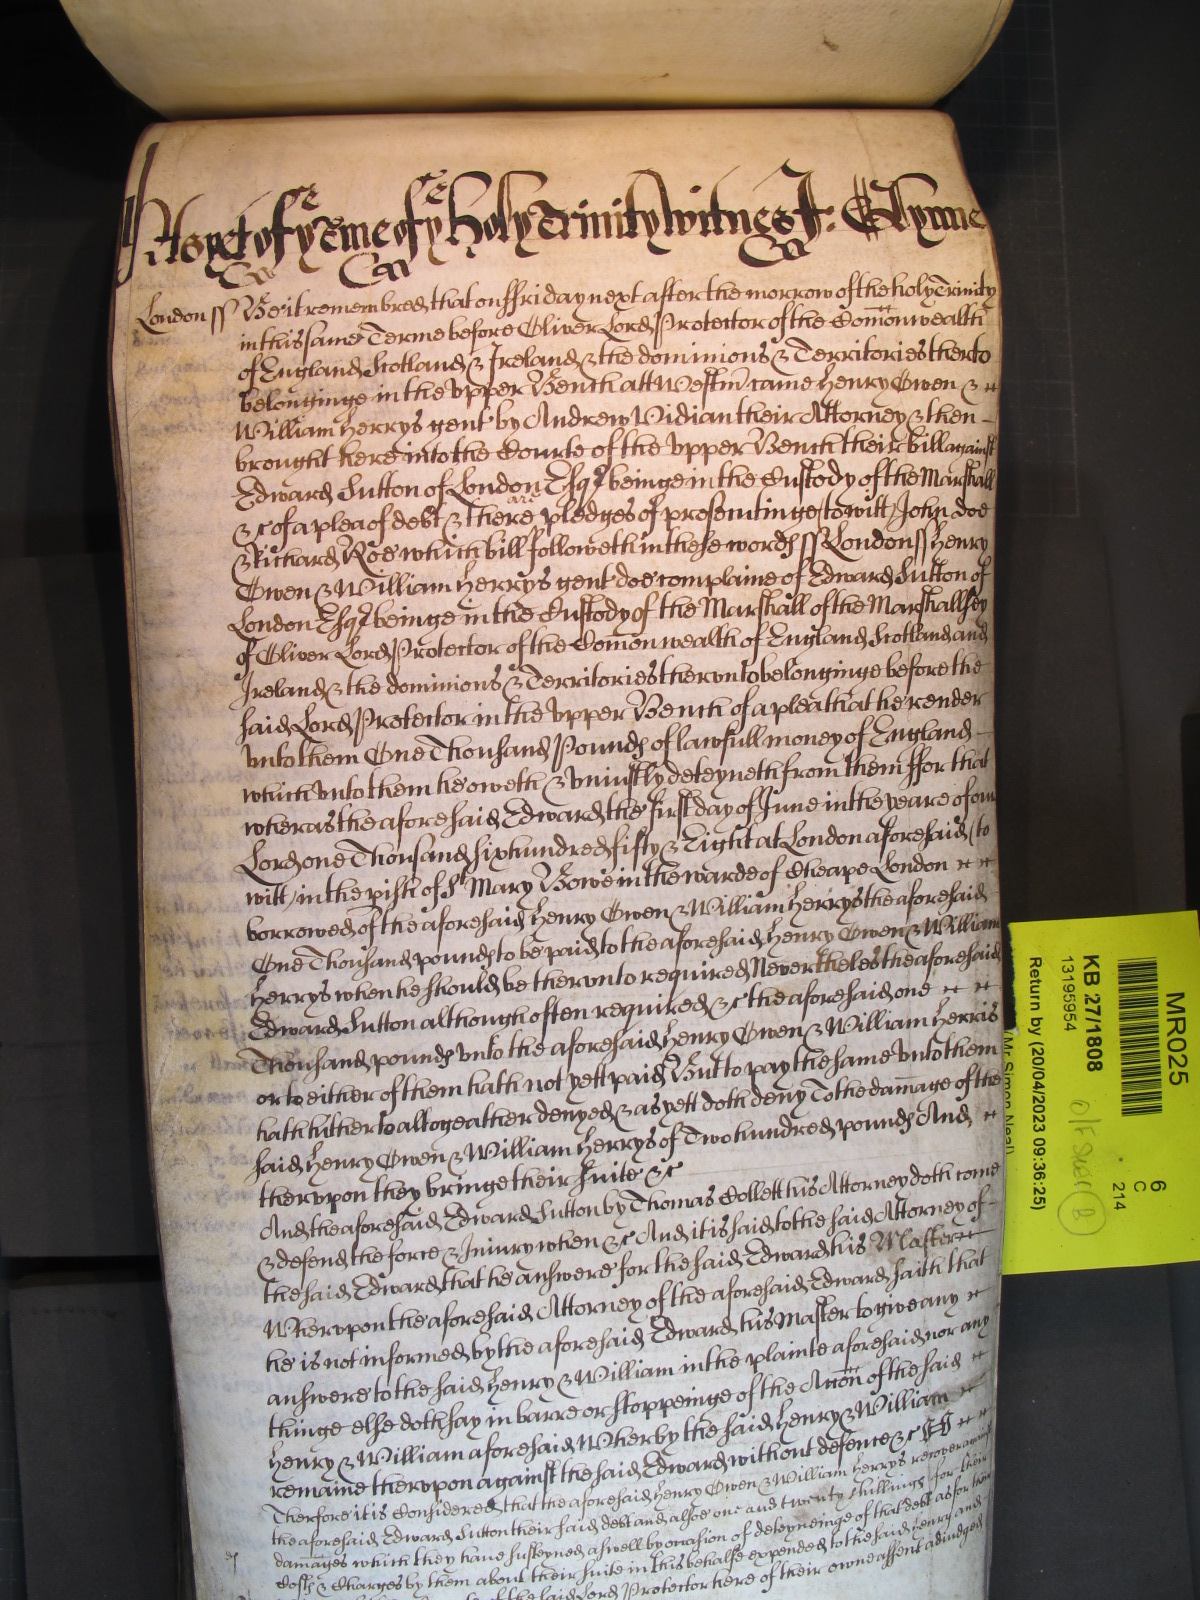 As yet of ye Terme of ye Holy Trinity Witnes J: Glynne
London ss Be it remembred that on ffriday next after the morrow of the holy Trinity
in this same Terme before Oliver Lord Protector of the Comonwealth
of England Scotland & Ireland & the dominions & Territories therto
belonginge in the Upper Bench att Westmr came Henry Owen &
William Herrys gent by Andrew Vidian their Attorney & then
brought here into the Courte of the Upper Bench their bill against
Edward Sutton of London Esqr beinge in the Custody of the Marshall
&c of a plea of debt & there are pledges of prosecutinge (to witt) John Doe
& Richard Roe which bill followeth in these words ss London ss Henry
Owen & William Herrys gent doe complaine of Edward Sutton of
London Esqr beinge in the Custody of the Marshall of the Marshallsey
of Oliver Lord Protector of the Comonwealth of England Scotland and
Ireland & the dominions & Territories therunto belonginge before the
said Lord Protector in the Upper Bench of a plea that he render
unto them One Thousand Pounds of lawfull money of England
which unto them he oweth & uniustly deteyneth from them ffor that
wheras the aforesaid Edward the first day of June in the yeare of our
Lord one Thousand six hundred fifty & Eight at London aforesaid (to
witt) in the pish of St Mary Bowe in the warde of Cheape London
borrowed of the aforesaid Henry Owen & William Herrys the aforesaid
One Thousand pounds to be paid to the aforesaid Henry Owen & William
Herrys when he should be therunto required Neverthelesse the aforesaid
Edward Sutton although often required &c the aforesaid one
Thousand pounds unto the aforesaid Henry Owen & William Herris
or to either of them hath not yett paid But to pay the same unto them
hath hitherto altogeather denyed & as yett doth deny To the damage of the
said Henry Owen & William Herrys of Two hundred pounds And
therupon they bringe their suite &c
And the aforesaid Edward Sutton by Thomas Collett his Attorney doth come
& defend the force & Iniury when &c And it is said to the said Attorney of
the said Edward that he answere for the said Edward his Master
Wherupon the aforesaid Attorney of the aforesaid Edward saith that
he is not informed by the aforesaid Edward his Master to give any
answere to the said Henry & William in the plainte aforesaid nor any
thinge else doth say in barre or stoppeinge of the Accon of the said
Henry & William aforesaid Wherby the said Henry & William
remaine therupon against the said Edward without defence &c
Therfore it is Considered that the aforesaid Henry Owen & William Herrys recover against
the aforesaid Edward Sutton their said debt and alsoe one and twenty shillings for their
damages which they have susteyned aswell by occasion of deteyneinge of that debt as for their
Costs & Charges by them about their suite in this behalfe expended to the said Henry and
the said Lord Protector here of their owne assent adiudged
MR025
6
C
214
KB 27/1808
13195954
Return by (20/04/2023 09:36:25)
(Mr Simon Neal)